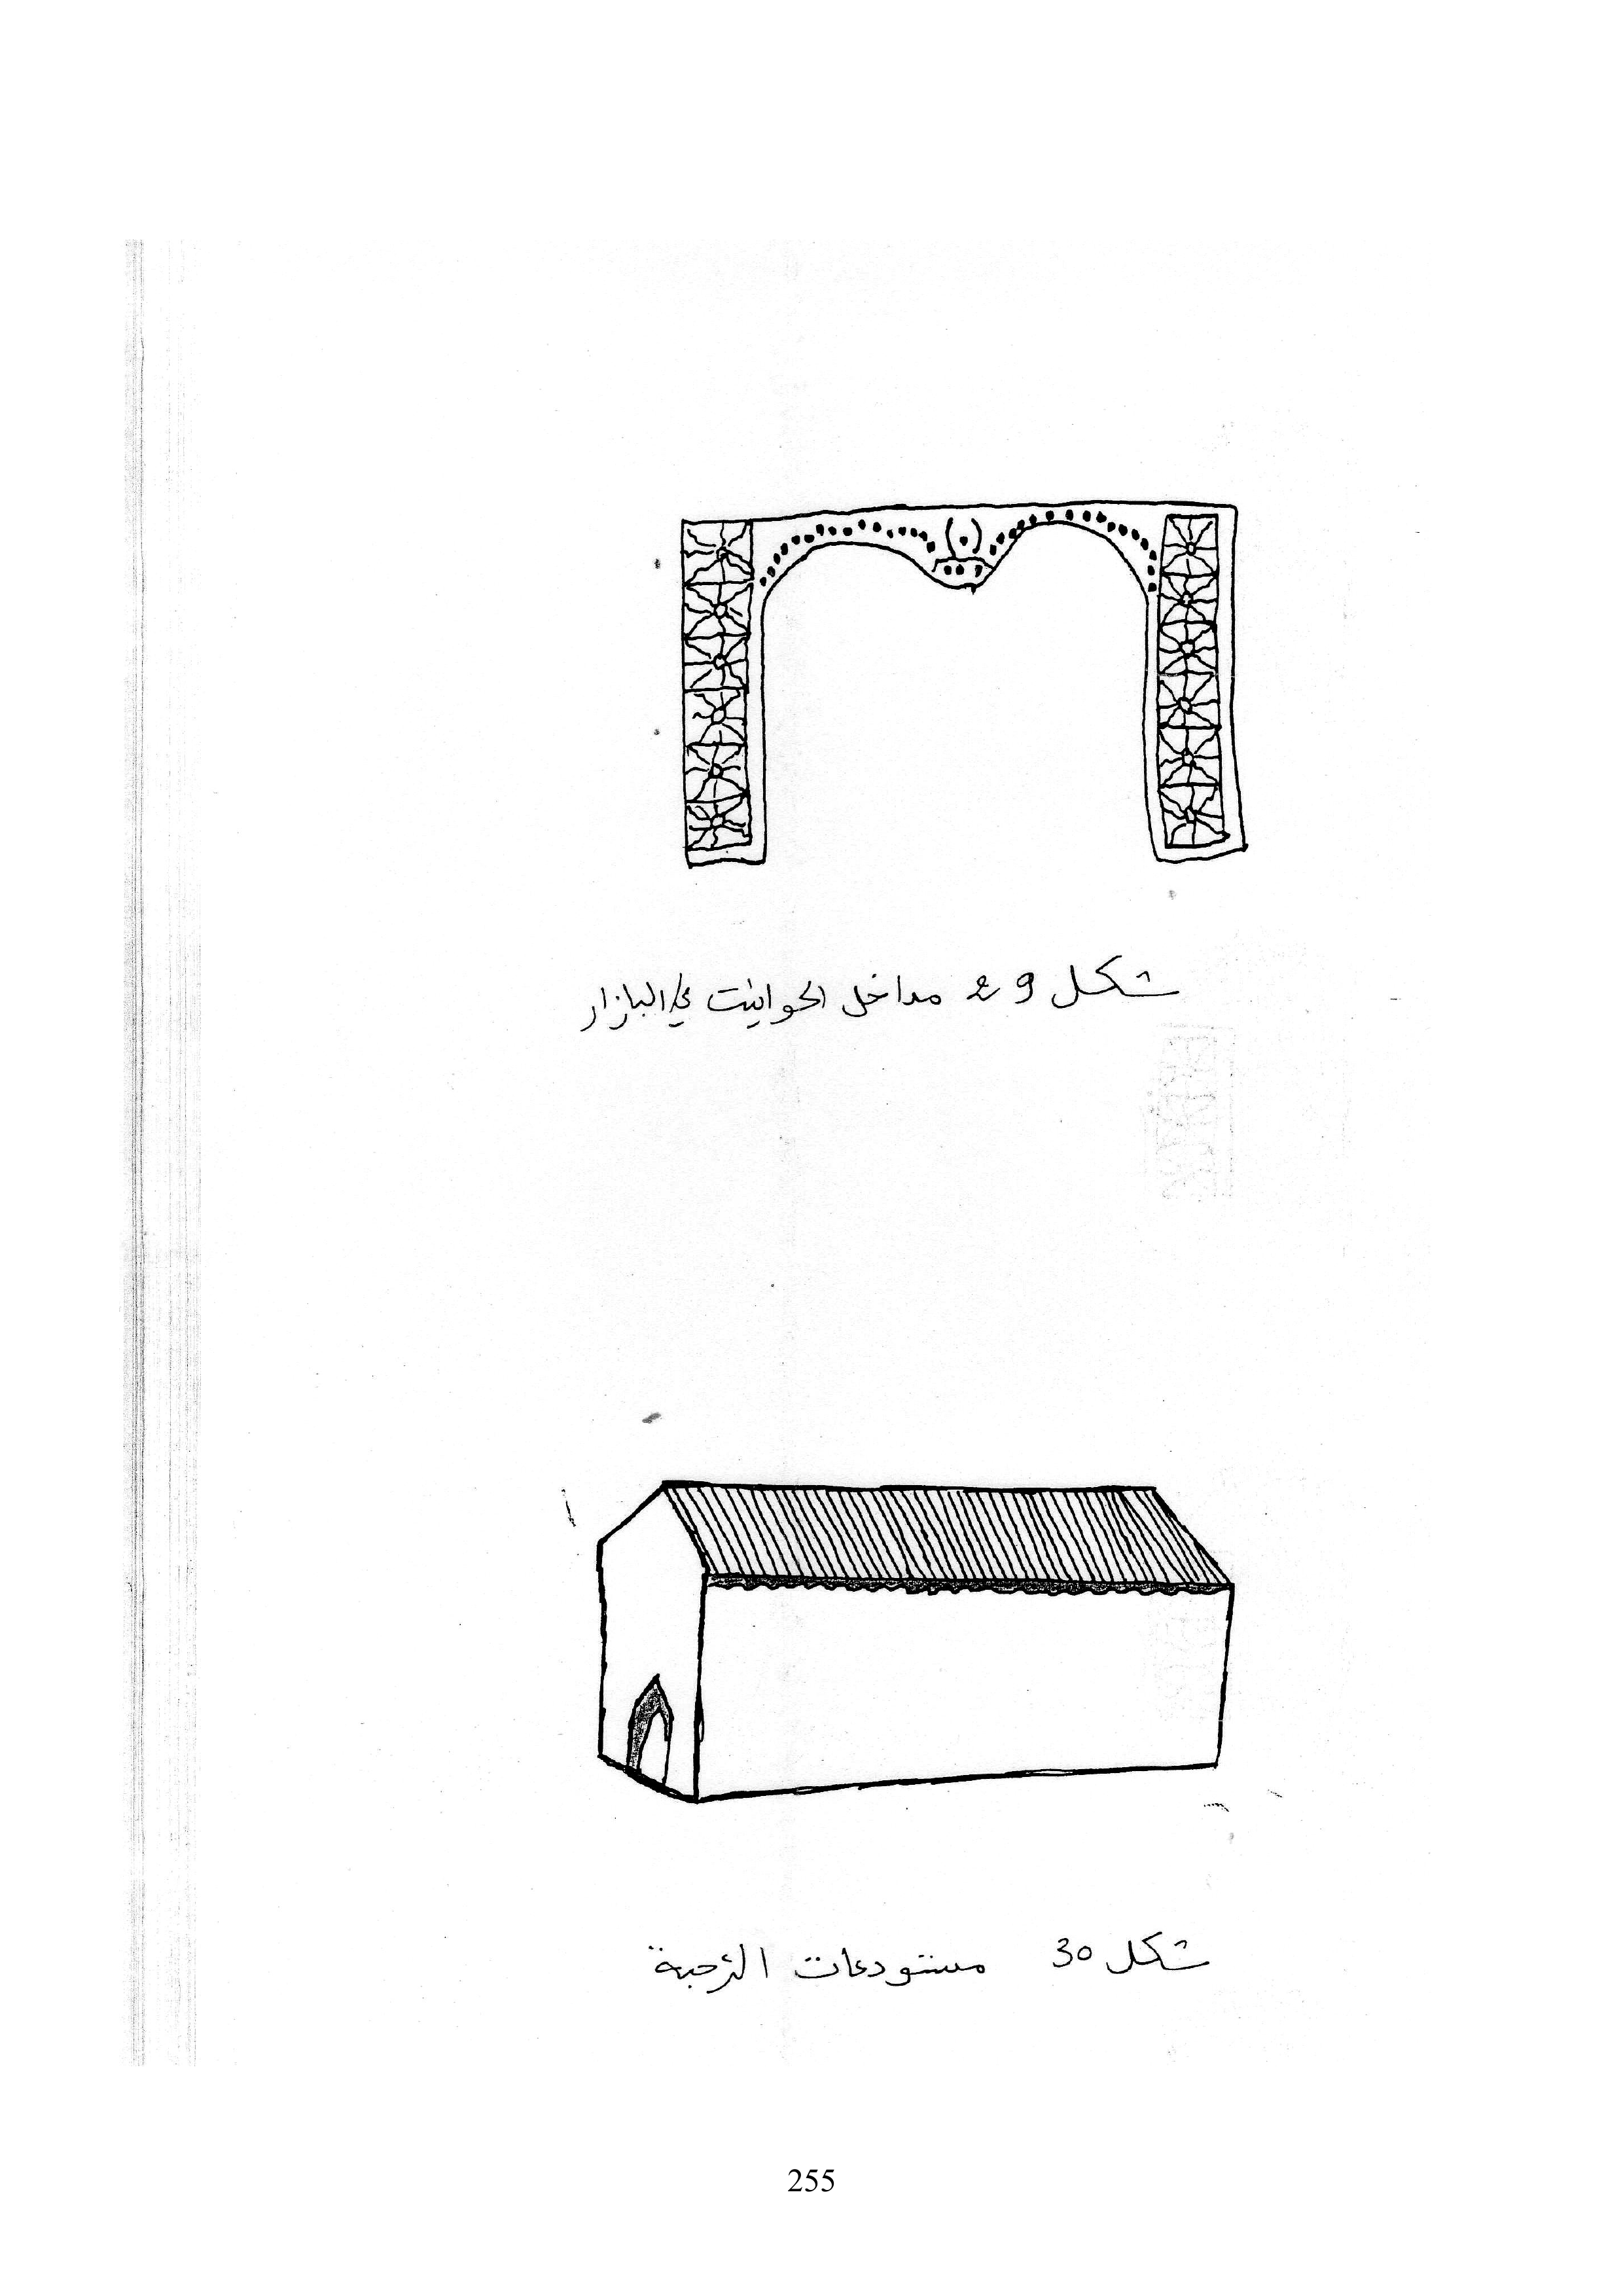 شكل 29 مداخل الحوانيت في البازار
شكل 30 مستودعات الرحبة
255